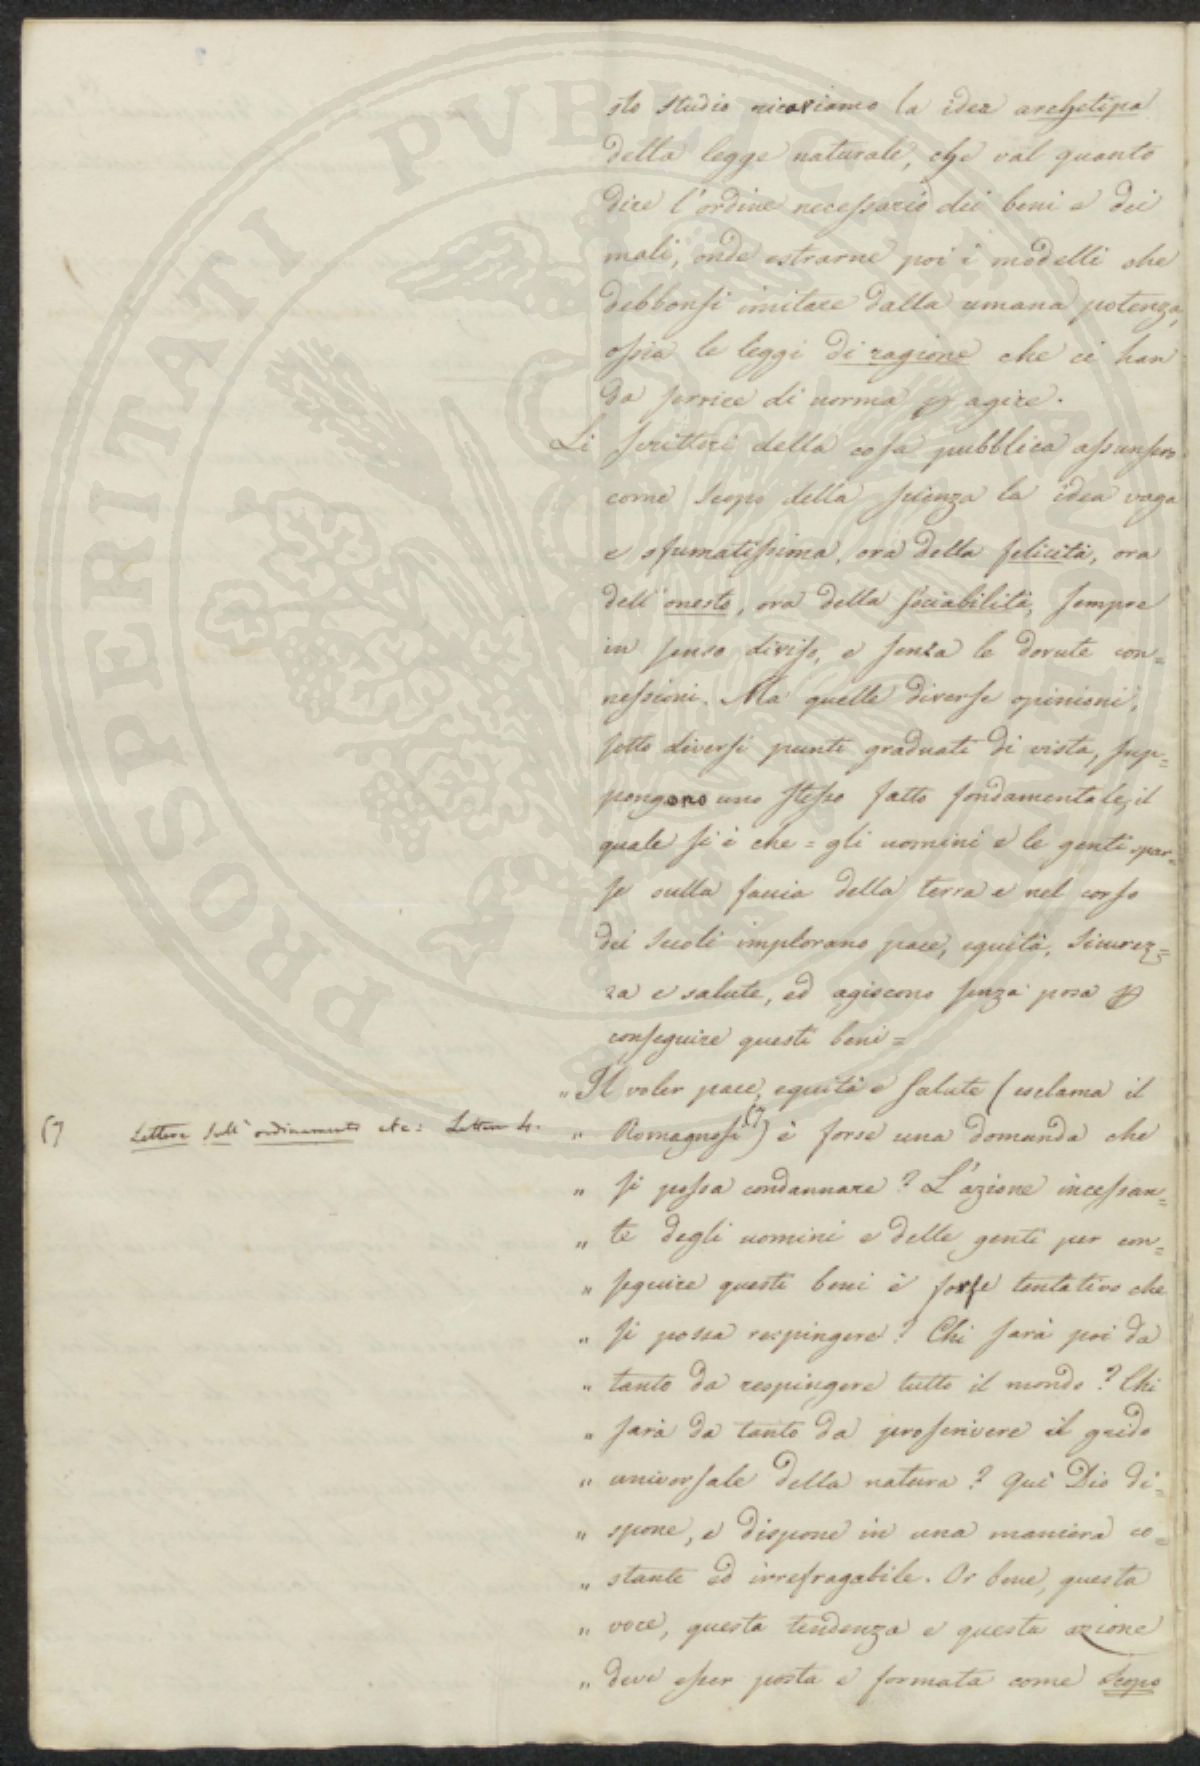 sto studio ricaviamo la idea archetipa
della legge naturale, che val quanto
dire l'ordine necessario dei beni e dei
mali, onde estrarne poi i modelli che
debbonsi imitare dalla umana potenza,
ossia le leggi di ragione che ci han
da servire di norma p agire.
Li scrittori della cosa pubblica assunsero
come scopo della scienza la idea vaga
e sfumatissima, ora della felicità, ora
dell'onesto, ora della sociabilità, sempre
in senso diviso, e senza le dovute con=
nessioni. Ma quelle diverse opinioni,
sotto diversi punti graduati di vista, sup=
pongono uno stesso fatto fondamentale, il
quale si è che = gli uomini e le genti spar=
se sulla faccia della terra e nel corso
dei secoli implorano pace, equità, sicurez=
za e salute, ed agiscono senza posa p
conseguire questi beni =
" Il voler pace, equità e salute (esclama il
" Romagnosi (7)) è forse una domanda che
(7 Lettere sull'ordinamento etc: Lettera 4.
" si possa condannare? L'azione incessan=
" te degli uomini e delle genti per con=
" seguire questi beni è forse tentativo che
" si possa respingere? Chi sarà poi da
" tanto da respingere tutto il mondo? Chi
" sarà da tanto da proscrivere il grido
" universale della natura? Qui Dio di=
" spone, e dispone in una maniera co=
" stante ed irrefragabile. Or bene, questa
" voce, questa tendenza e questa azione
" deve esser posta e formata come scopo
PROSPERITATI PVBLICAE AVGENDAE